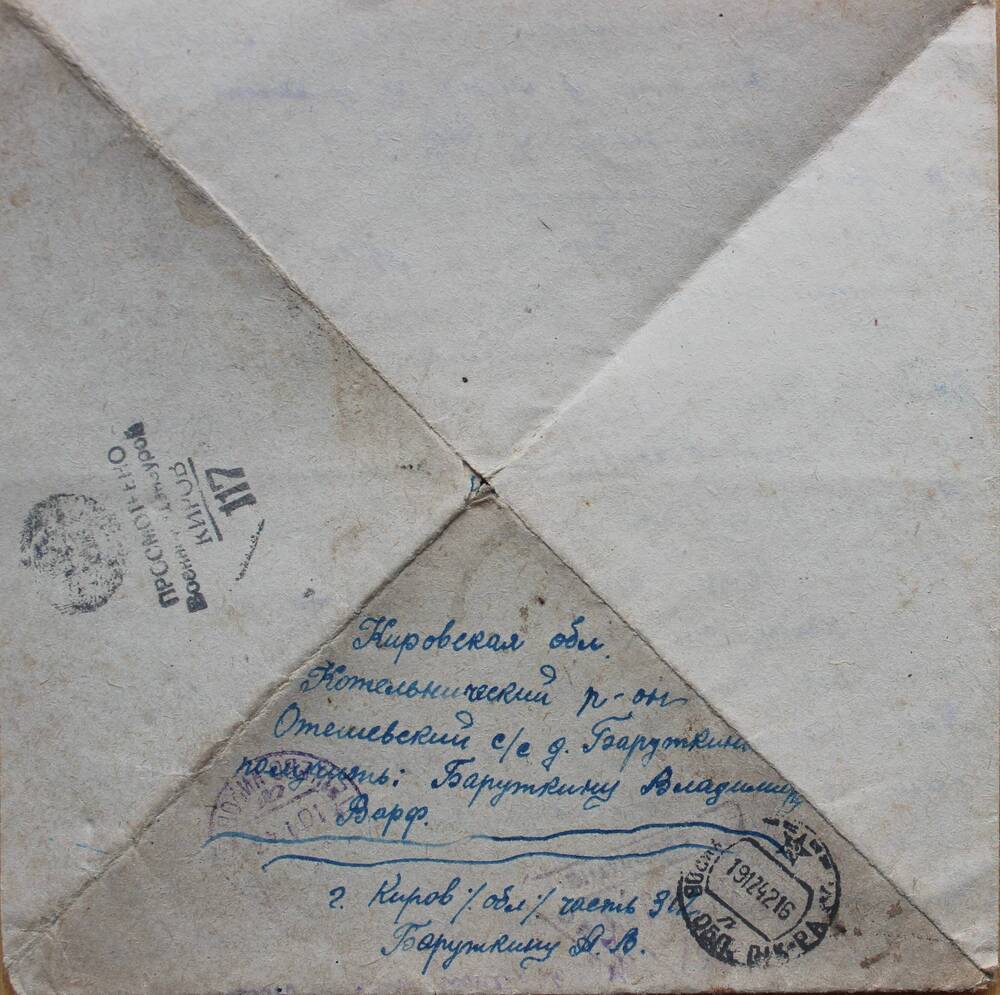 ПРОСМОТРЕНО
Военной Цензурой
КИРОВ
117
Кировская обл.
Котельнический р-он
Отешевский с/с д. Баружкины
получить: Баружкину Владимиру
Варф.
г. Киров /обл/ часть
Баружкину А. В.
19124216
101